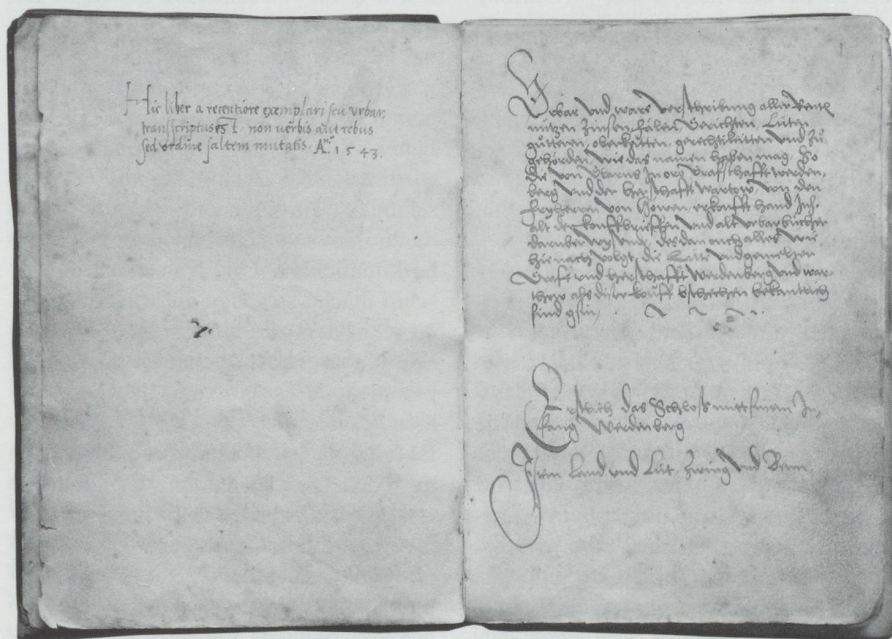 Hic liber a recentiore exemplari seu vrbar;
transscriptus est non verbis aut rebus
sed ordine saltem mutatis. Aº. 1543.
1
Urbar vnd ware verschribung aller Rentt
nützen Zinsen fälen Gerichten, Lüten
gütteren, oberkeitten, gerechtikeitten vnd zů
gehörden, wie das namen haben mag, So
die von Glarus Jn der Graffschafft Werden,
berg vnd der herschafft Wartow, von den
fryherren von Höwen, erkaufft hand Jnh,
alt der kouffbrieffen vnd alt vrbarbücher
darüber des dan ouch alles wie
hienach volgt, die Lüte der
Graff vnd herschafft Werdenberg vnd war
thow als diser kouff bschechen bekantlich
sind gsin,
Erstlich das Schloss mitt sinem Jn,
fang Werdenberg
Jtem Land vnd Lüt, zwing vnd Benn,